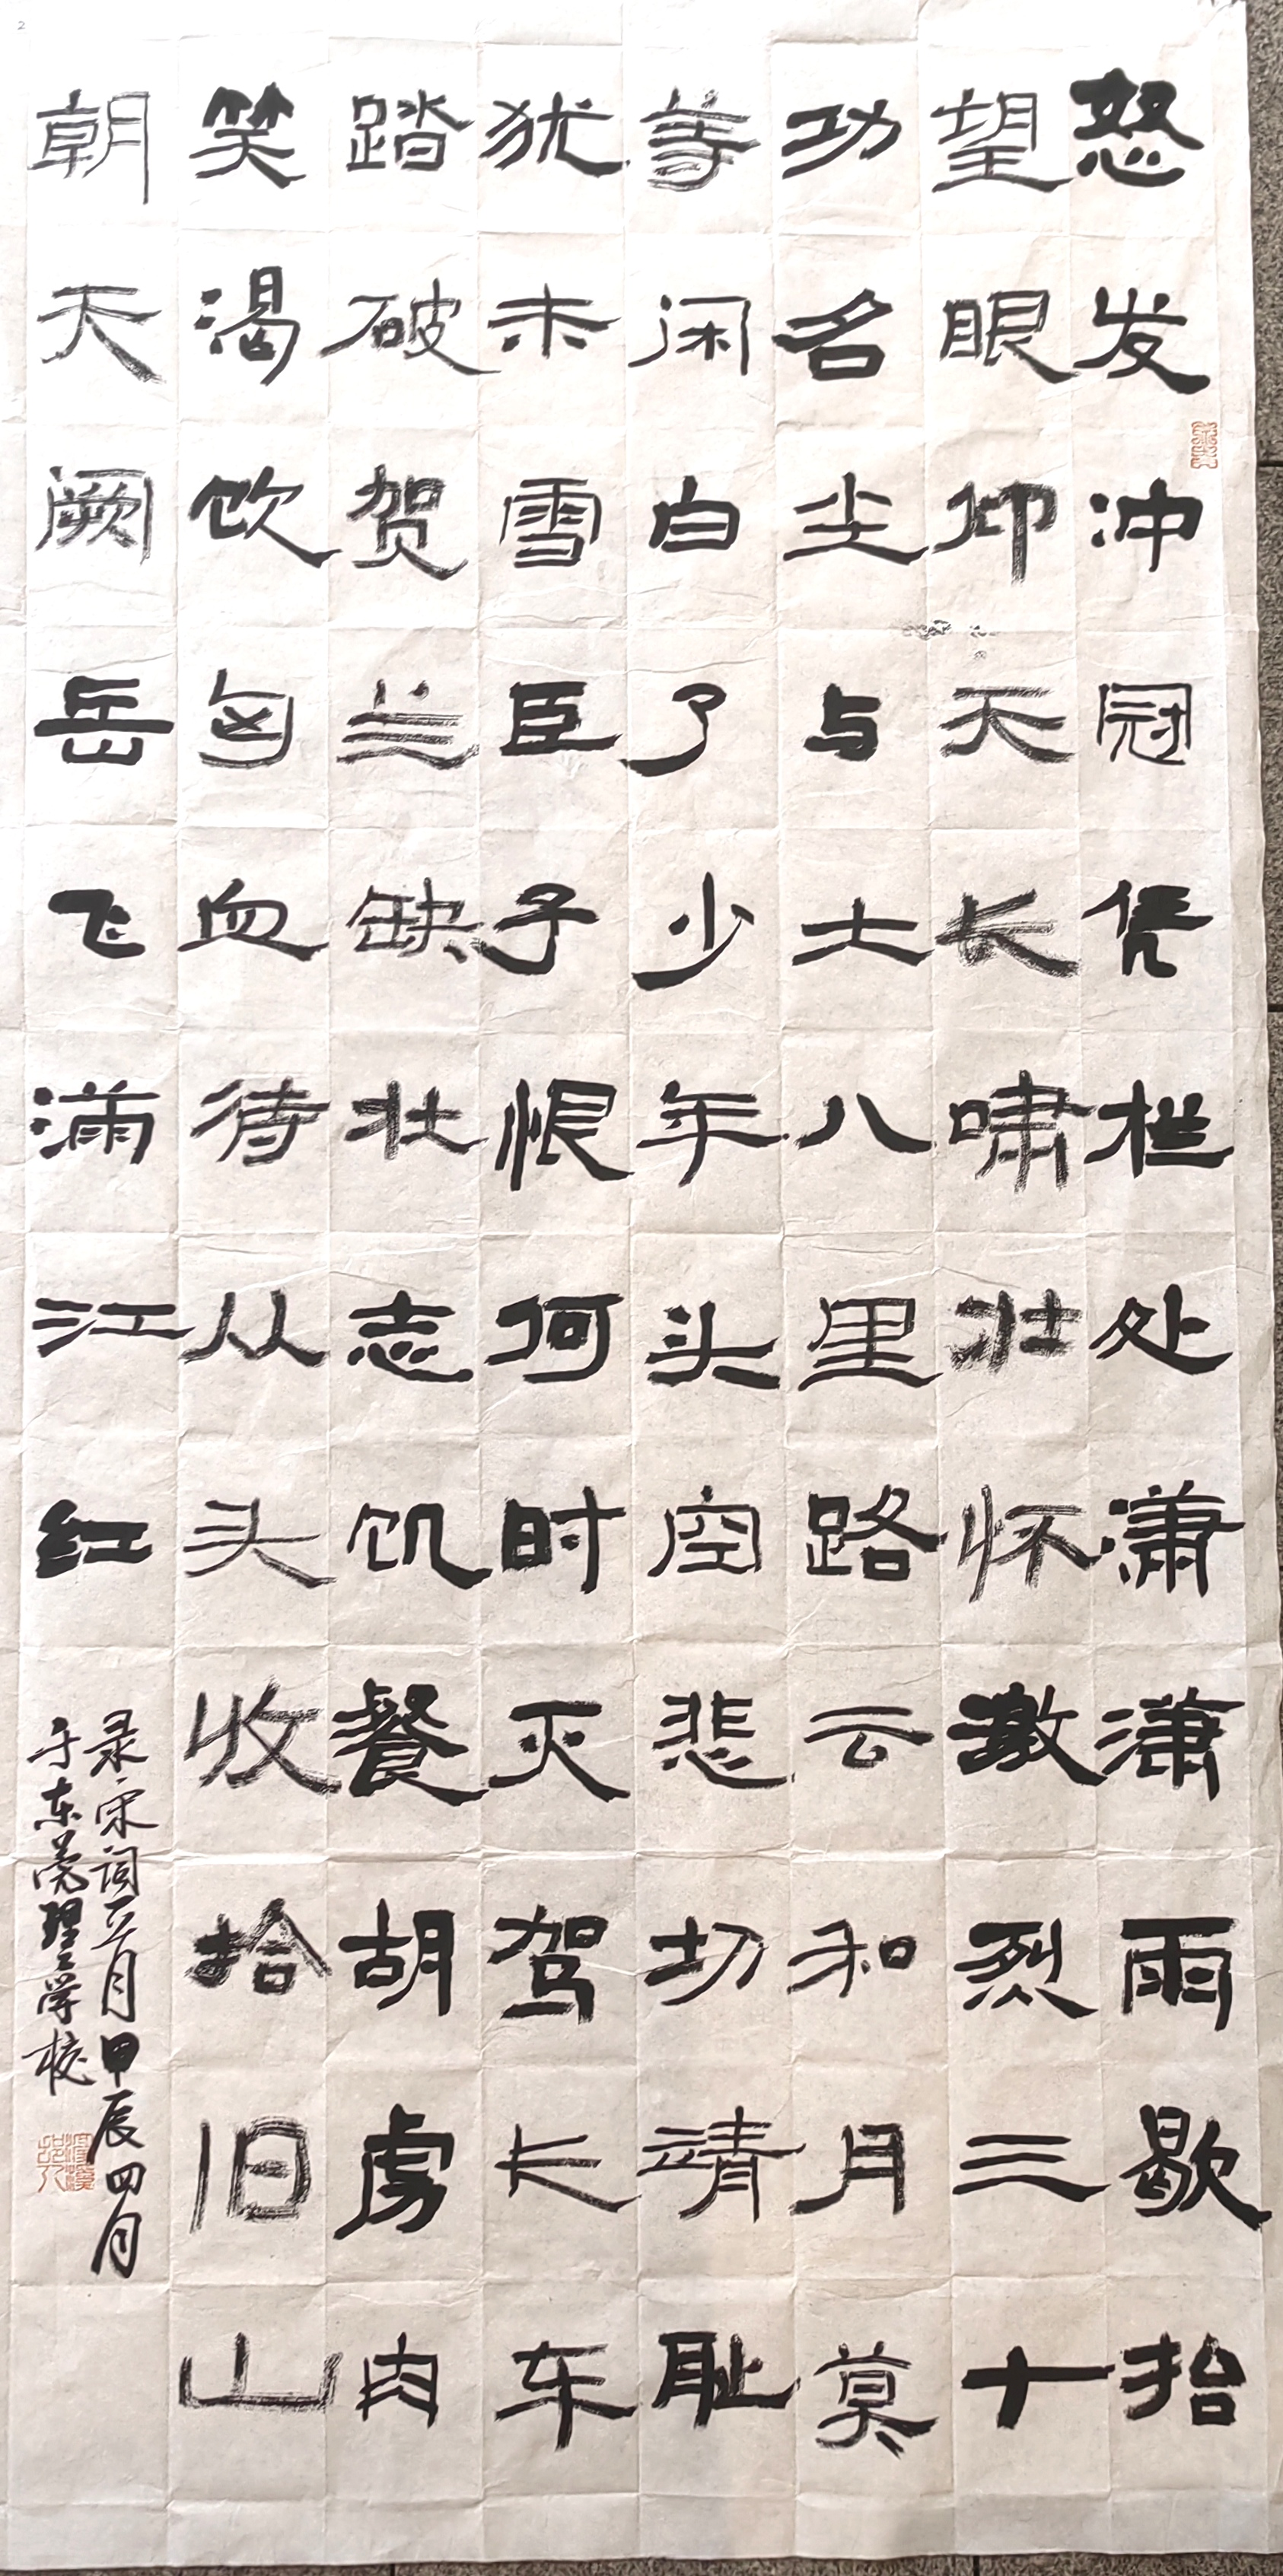 怒发冲冠凭栏处潇潇雨歇抬
望眼仰天长啸壮怀激烈三十
功名尘与土八里路云和月莫
等闲白了少年头空悲切靖耻
犹未雪臣子恨何时灭驾长车
踏破贺兰缺壮志饥餐胡虏肉
笑渴饮匈血待从头收拾旧山
朝天阙岳飞满江红
录宋词甲辰四月
于东莞理工学校
2